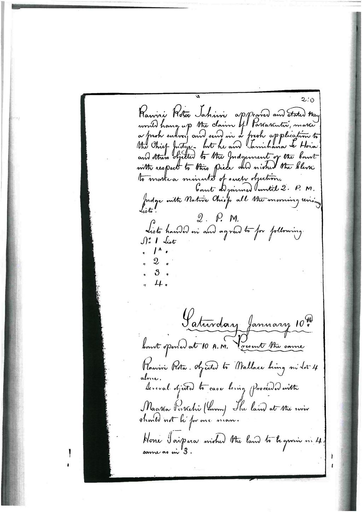 210
Rawiri Rota Tahiwi appeared and stated they
would hang up the claim of Parakiritia, make
a fresh survey and send in a fresh application to
the Chief Judge, but he and Te Hoia
and others objected to the Judgement of the Court
with respect to this piece and wished the Clerk
to make a minute of such objection
Court adjourned until 2. P.M.
Judge with Native Chiefs all the morning revising
Lists.
2. P.M.
Lists handed in and agreed to for following
No 1 List
" 1a "
" 2 "
" 3 "
" 4 "
Saturday January 10th
Court opened at 10 A.M. Present the same
Rawiri Rota. objected to Wallace being in Lot 4
alone.
Several objected to case being proceeded with
(Sworn) The land at the
should not be for one man.
Hone Taipua wished the land to be given in 4
same as in 3.